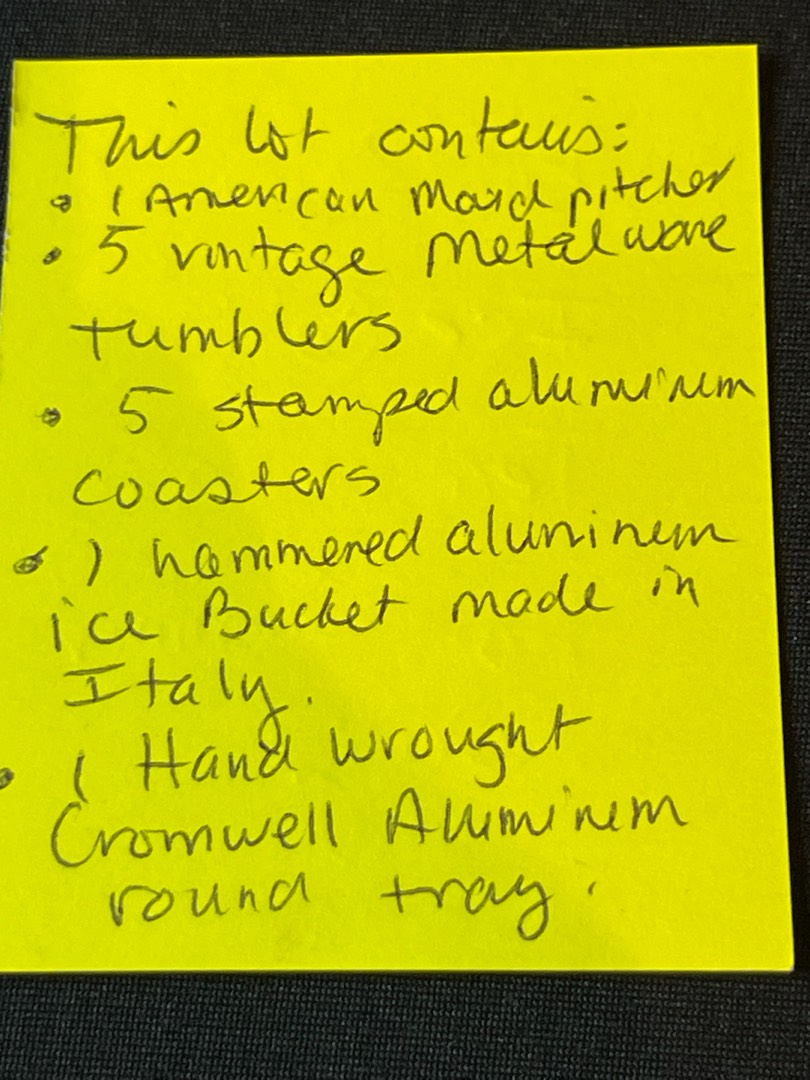 This lot contains:
• 1 American Maid pitcher
• 5 vintage metalware
tumblers
• 5 stamped aluminum
coasters
• 1 hammered aluminem
ice Bucket made in
Italy.
• 1 Hand wrought
Cromwell Aluminem
round tray.